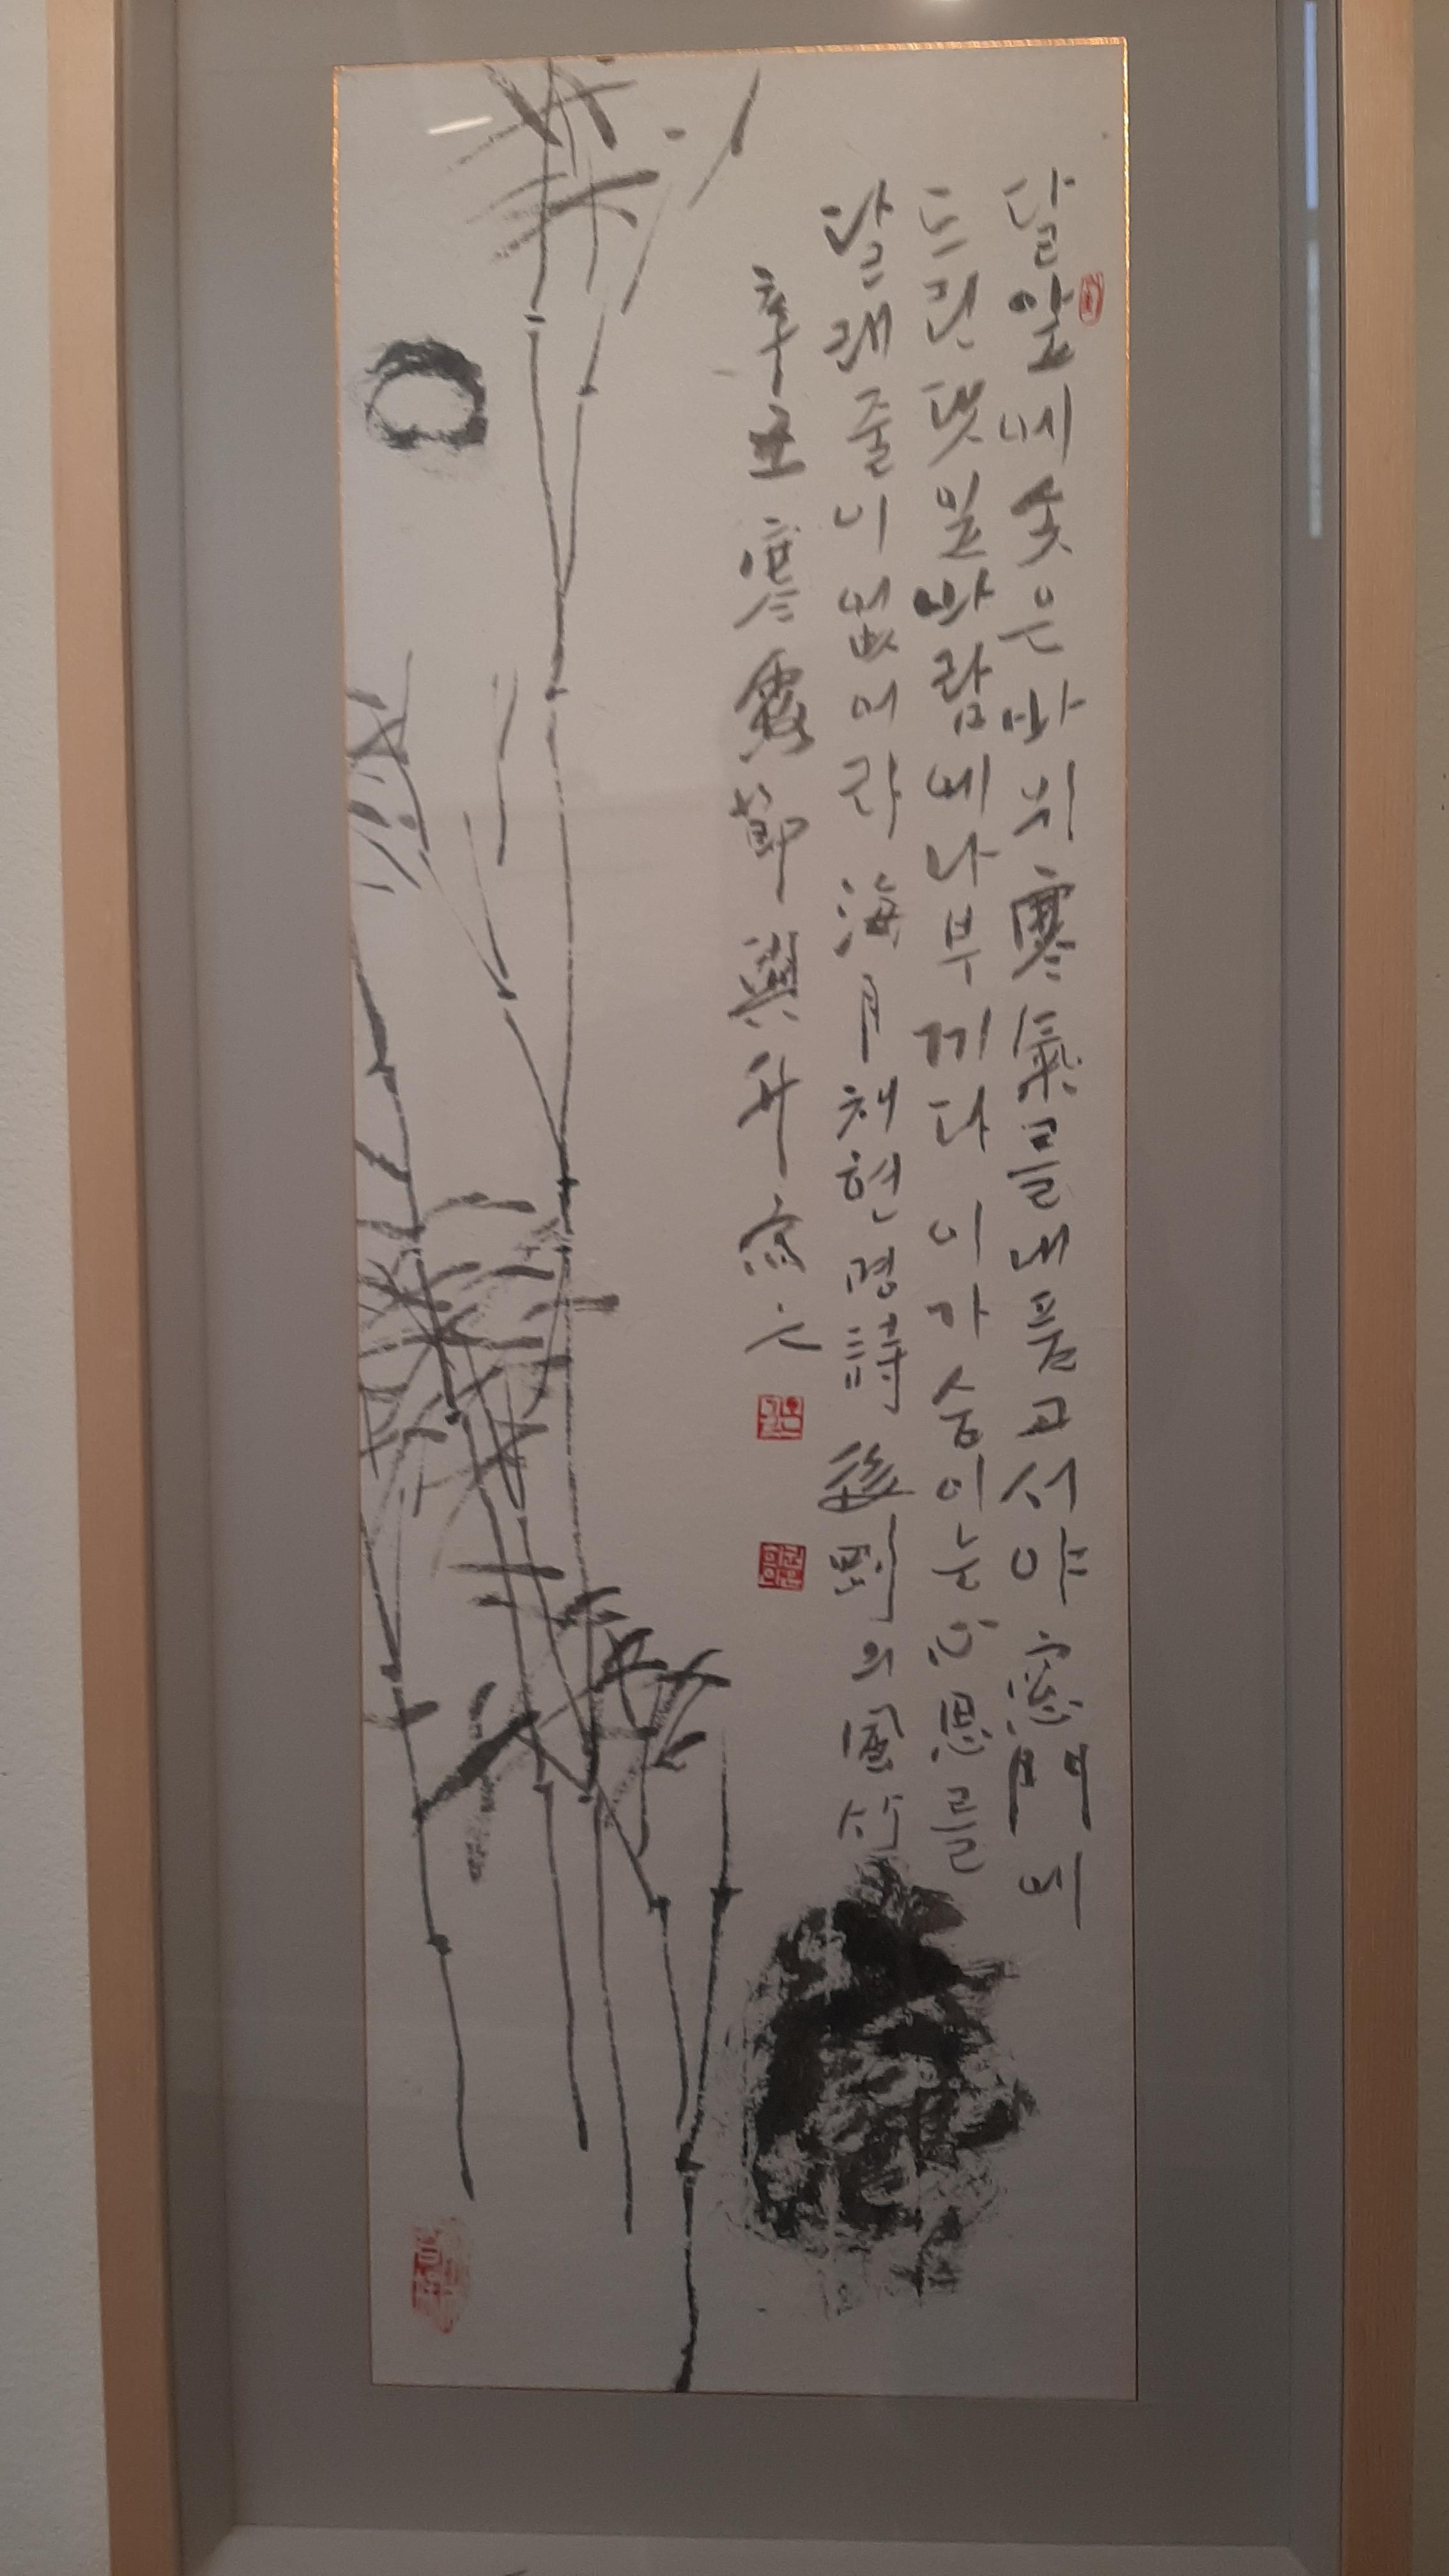 달앞에 솟은 바위 寒氣를 내품고서야 窓門에
드린 댓잎 바람에 나부끼다 이가슴 이는 心思를
달래줄이 없어라 海月 채현명 詩 後園의 風竹
辛丑 寒露節 與升 寫之